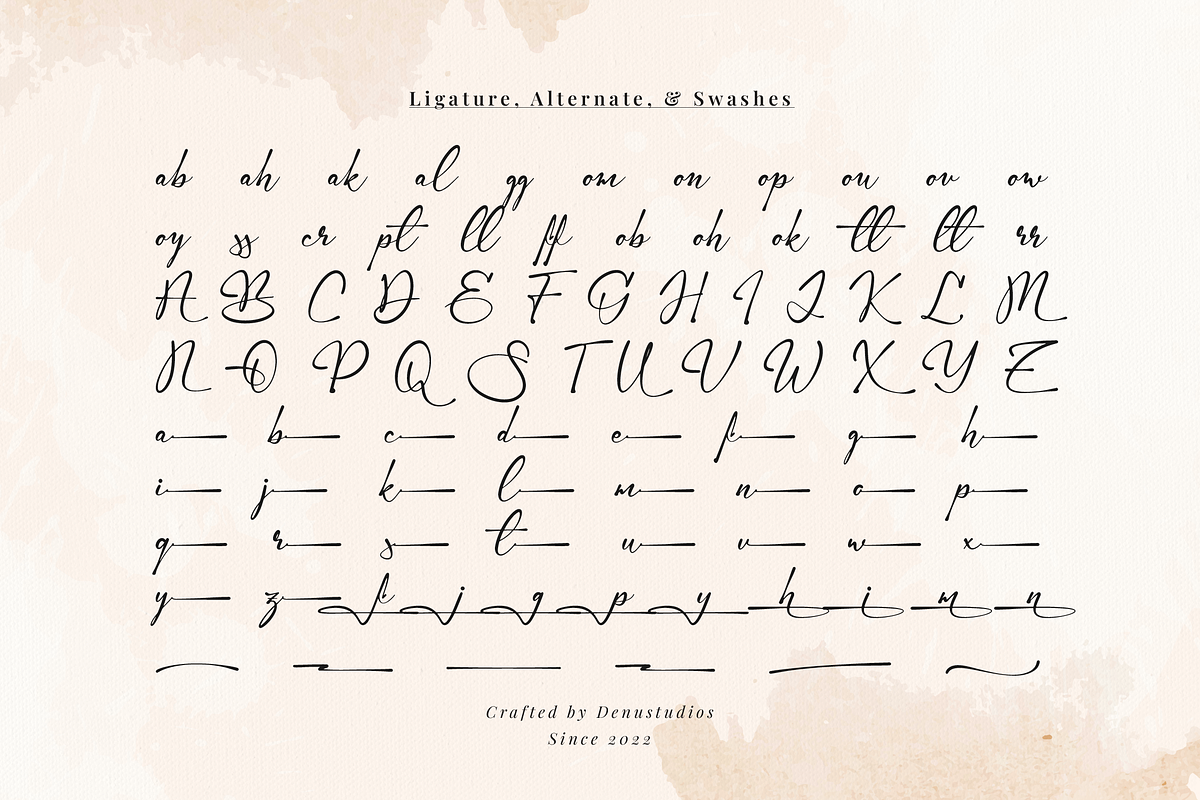 Ligature, Alternate, & Swashes
ab ah ak al gg om on op ou ov ow
oy ss cr pt ll ff ob oh ok tt tt rr
A B C D E F G H I J K L M
N O P Q S T U V W X Y Z
a b c d e f g h
i j k l m n o p
q r s t u v w x
y z f j g p y h i m n
Crafted by Denustudios
Since 2022